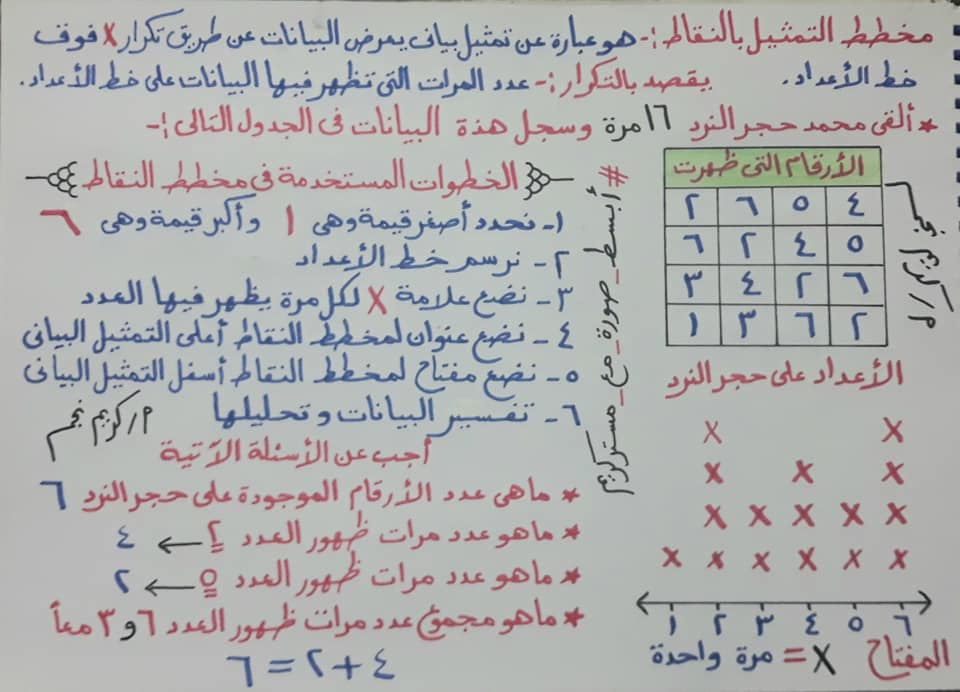 مخطط التمثيل بالنقاط :- هو عبارة عن تمثيل بيانى يعرض البيانات عن طريق تكرار X فوق
خط الأعداد. يقصد بالتكرار :- عدد المرات التى تظهر فيها البيانات على خط الأعداد.
* ألقى محمد حجر النرد ١٦ مرة وسجل هذة البيانات فى الجدول التالى :-
الأرقام التى ظهرت
٤ ٥ ٦ ٢
٥ ٤ ٢ ٦
٦ ٢ ٤ ٣
٢ ٦ ٣ ١
م/كريم نجم
الأعداد على حجر النرد
X X
X X X
X X X X X
X X X X X X
١ ٢ ٣ ٤ ٥ ٦
المفتاح X = مرة واحدة
#أبسط_صورة_مع_مستر كريم
الخطوات المستخدمة فى مخطط النقاط
١- نحدد أصغر قيمة وهى ١ وأكبر قيمة وهى ٦
٢- نرسم خط الأعداد
٣- نضع علامة X لكل مرة يظهر فيها العدد
٤- نضع عنوان لمخطط النقاط أعلى التمثيل البيانى
٥- نضع مفتاح لمخطط النقاط أسفل التمثيل البيانى
٦- تفسير البيانات وتحليلها
م/كريم نجم
أجب عن الأسئلة الآتية
* ماهى عدد الأرقام الموجودة على حجر النرد ٦
* ماهو عدد مرات ظهور العدد ٢ ← ٤
* ماهو عدد مرات ظهور العدد ٥ ← ٢
* ماهو مجموع عدد مرات ظهور العدد ٦ و ٣ معاً
٤ + ٢ = ٦